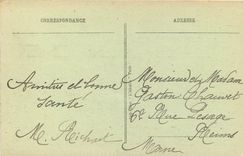 CORRESPONDANCE
ADRESSE
Amitiés et bonne
santé
M. Richet
Monsieur et Madame
Gaston Chauvet
62 Rue Lesage
Reims
Marne